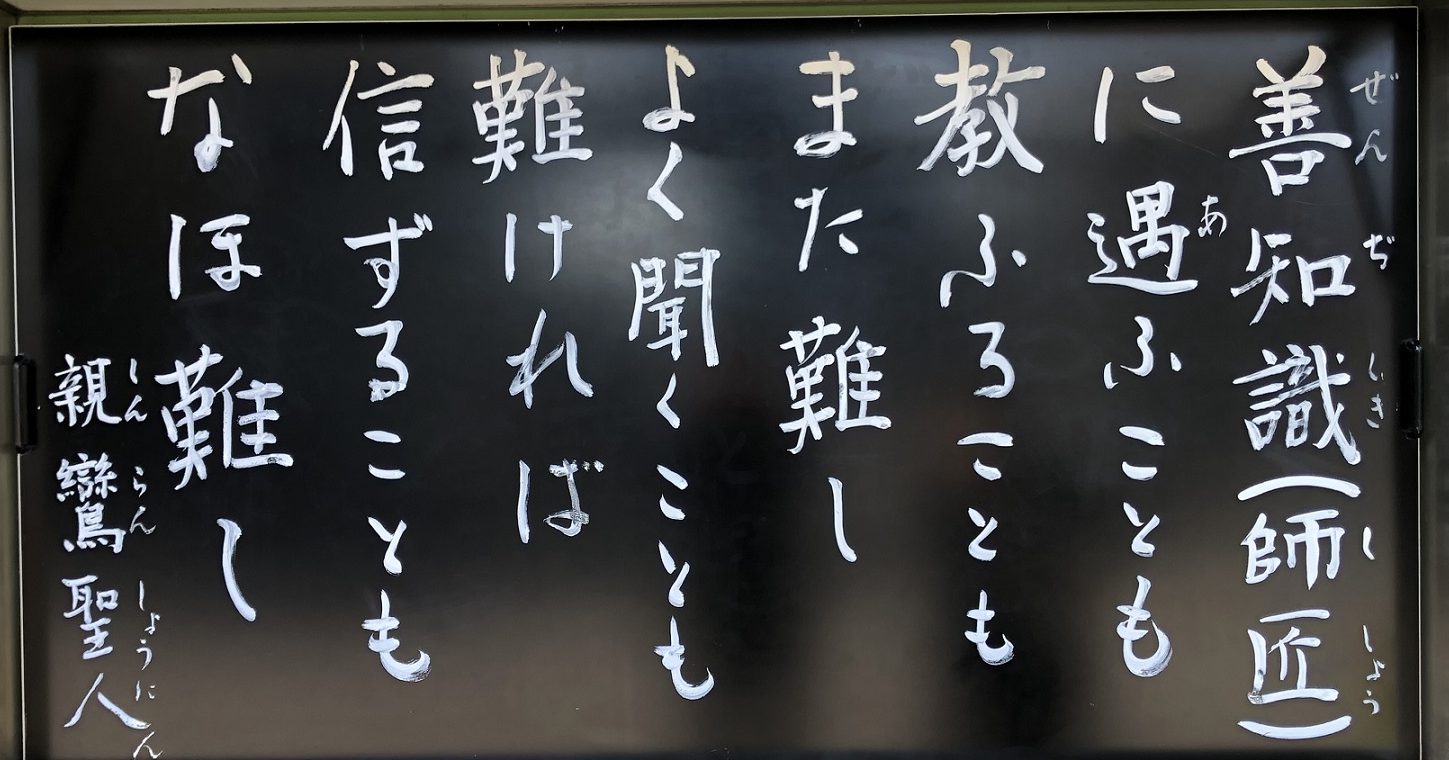 善知識(師匠)
ぜんぢしき ししょう
に遇ふことも
あ
教ふることも
また難し
よく聞くことも
難ければ
信ずることも
なほ難し
親鸞聖人
しんらんしょうにん